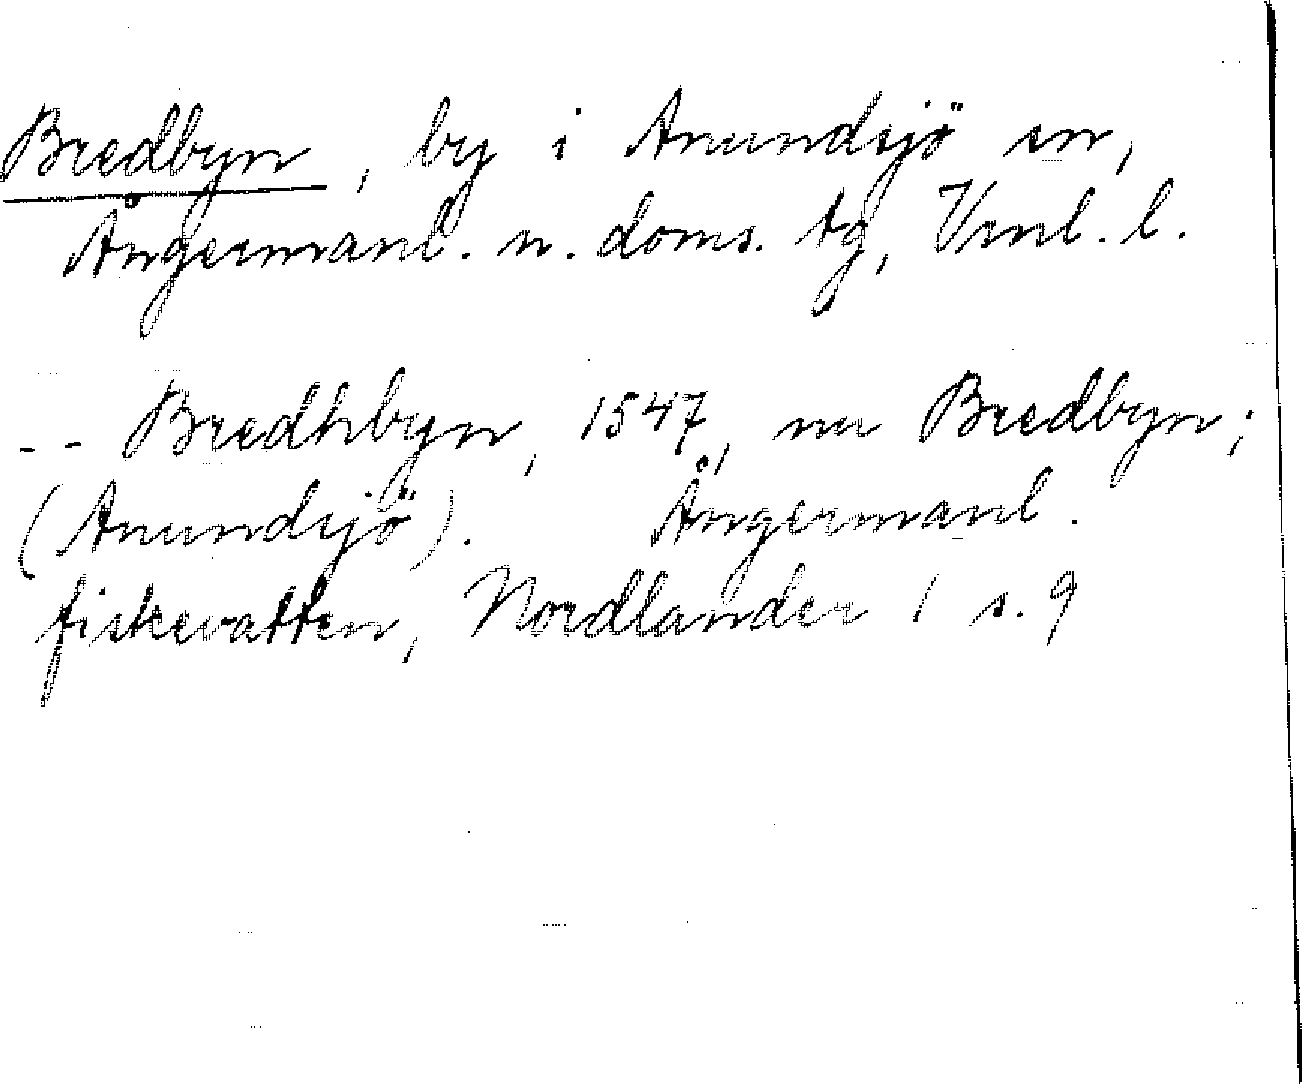 Bredbyn, by i Anundsjö sn,
Ångermanl. n. doms. tg, Vrnl. l.
-- Bredhbyn, 1547, nu Bredbyn;
(Anundsjö). Ångermanl.
fiskevatten, Nordlander 1 s. 9